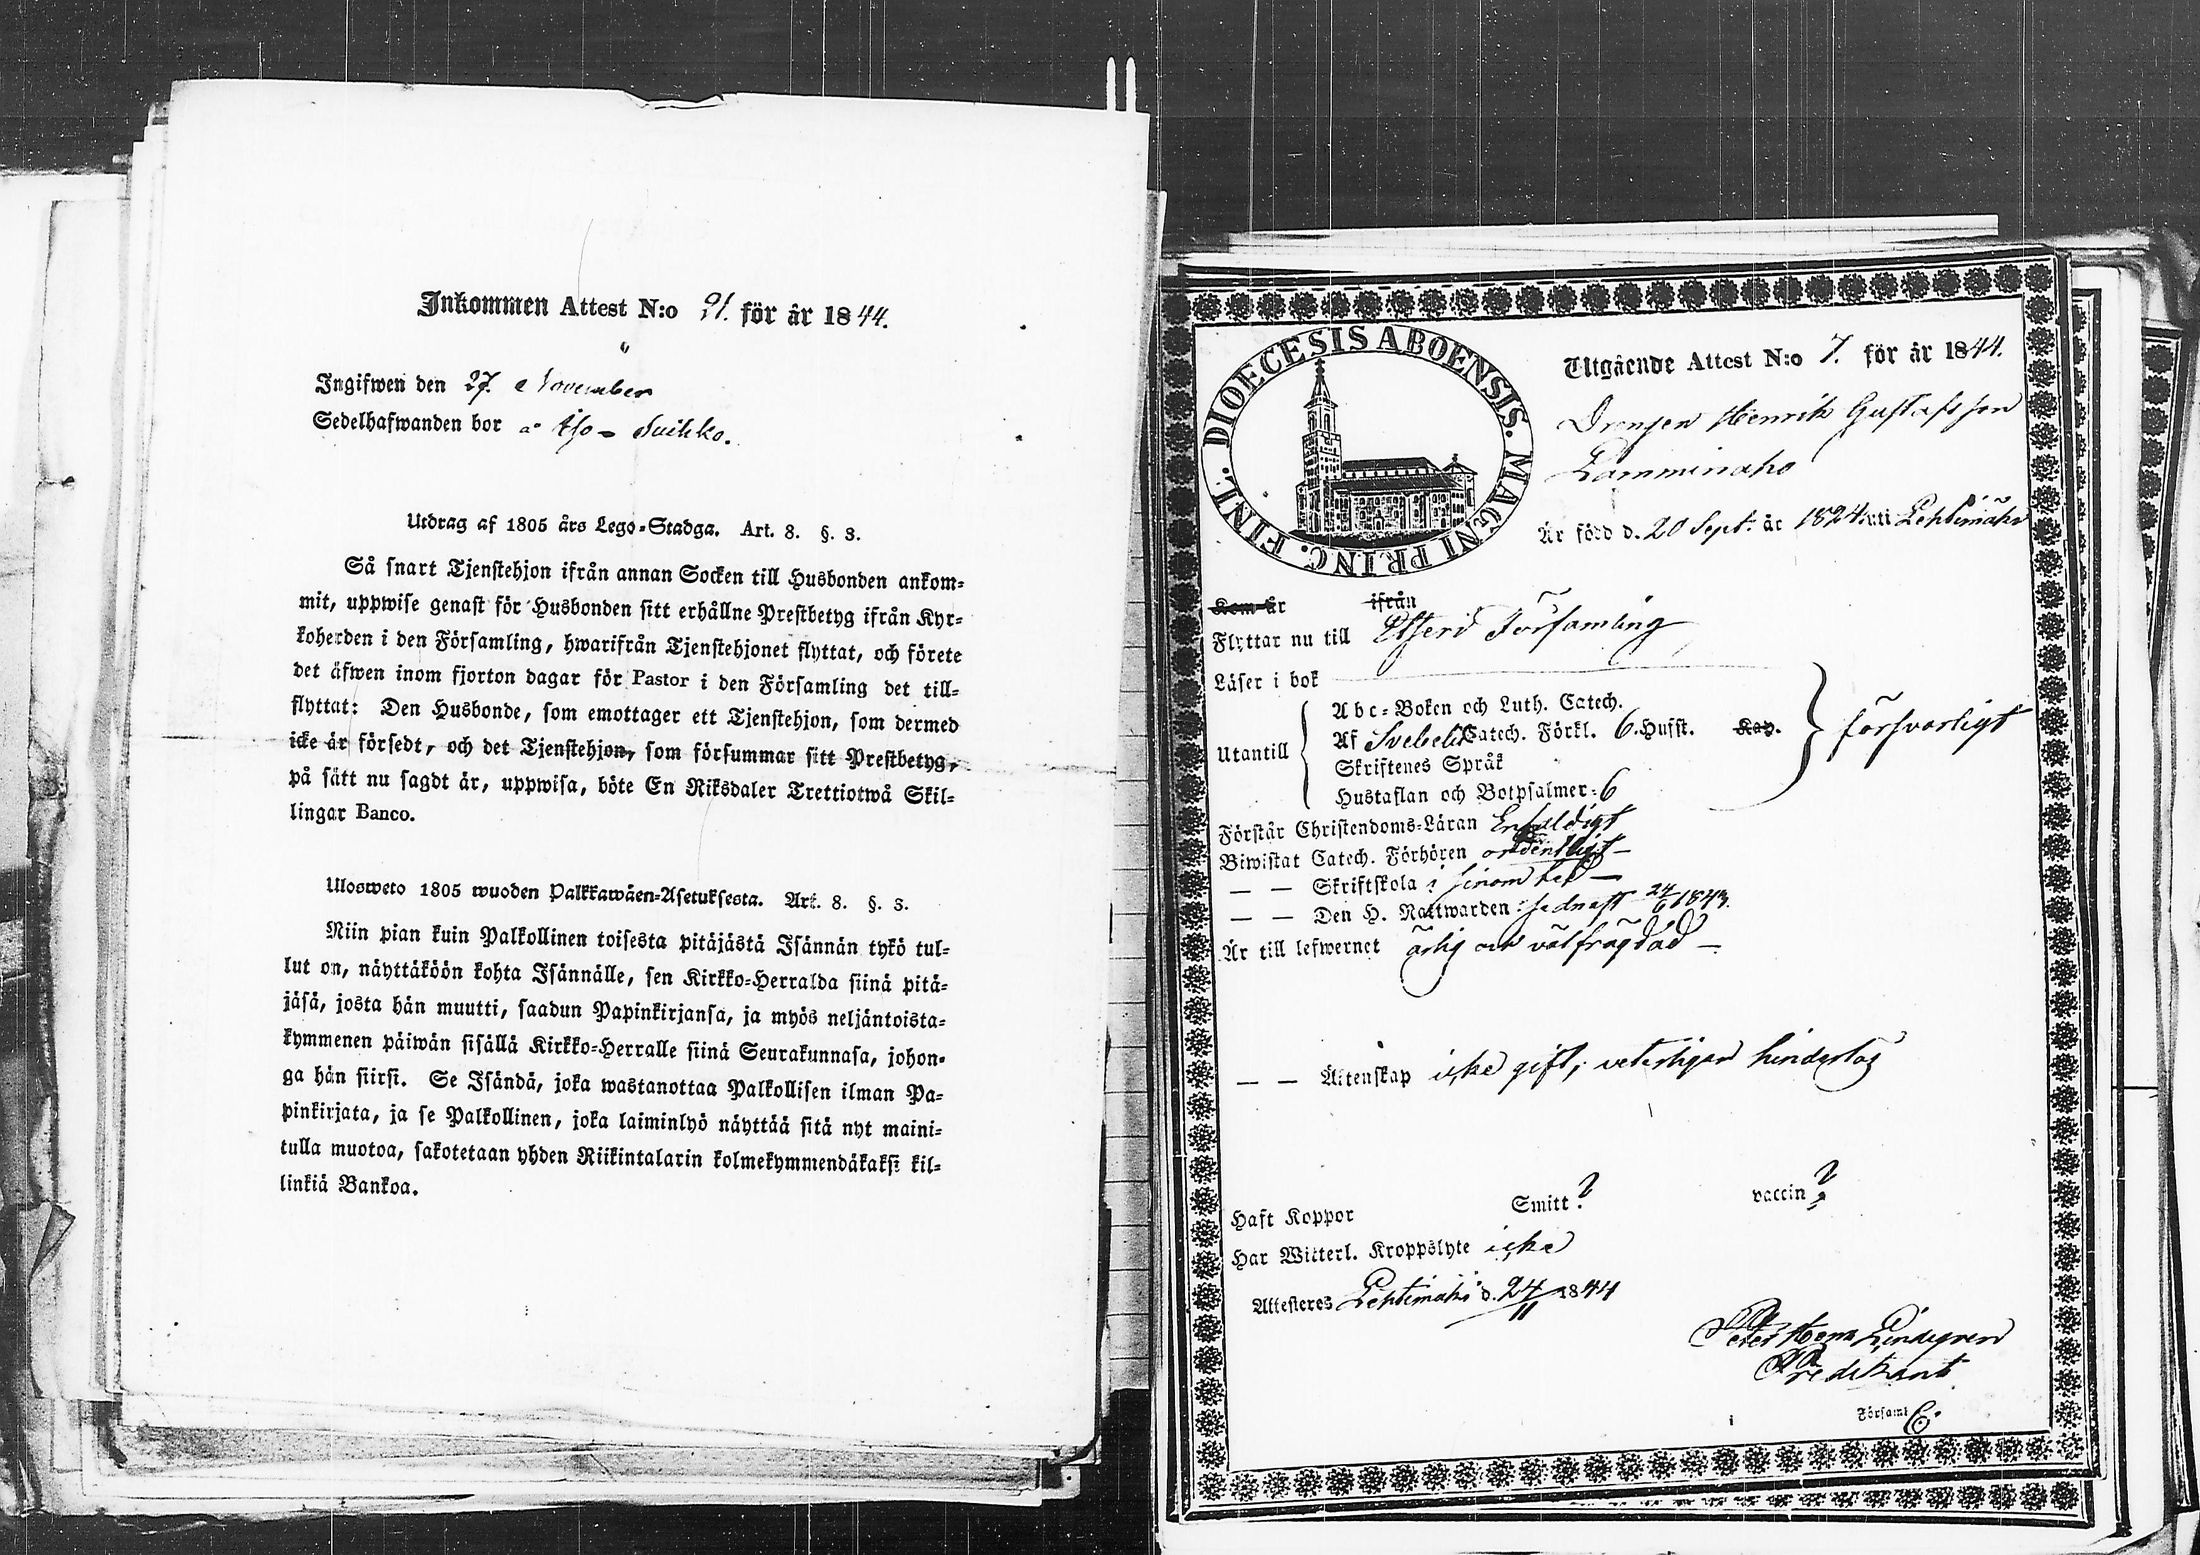 Inkommen Attest N:o 91. för år 1844.
Ingifwen den 27. November
Sedelhafwanden bor å Iso-Suikko.
Utdrag af 1805 års Lego-Stadga. Art. 8. §. 3.
Så snart Tjenstehjon ifrån annan Socken till Husbonden ankom-
mit, uppwise genast för Husbonden sitt erhållne Prestbetyg ifrån Kyr-
koherden i den Församling, hwarifrån Tjenstehjonet flyttat, och förete
det äfwen inom fjorton dagar för Pastor i den Församling det till-
flyttat: Den Husbonde, som emottager ett Tjenstehjon, som dermed
icke är försedt, och det Tjenstehjon, som försummar sitt Prestbetyg,
på sätt nu sagdt är, uppwisa, böte En Riksdaler Trettiotwå Skil-
lingar Banco.
Ulosweto 1805 wuoden Palkkawäen-Asetuksesta. Art. 8. §. 3.
Niin pian kuin Palkollinen toisesta pitäjästä Isännän tykö tul-
lut on, näyttäköön kohta Isännälle, sen Kirkko-Herralda siinä pitä-
jäsä, josta hän muutti, saadun Papinkirjansa, ja myös neljäntoista-
kymmenen päiwän sisällä Kirkko-Herralle siinä Seurakunnasa, johon-
ga hän siirsi. Se Isändä, joka wastanottaa Palkollisen ilman Pa-
pinkirjata, ja se Palkollinen, joka laiminlyö näyttää sitä nyt maini-
tulla muotoa, sakotetaan yhden Riikintalarin kolmekymmendäkaksi kil-
linkiä Bankoa.
DIOECESIS ABOENSIS. MAGNI PRINC. FINL.
Utgående Attest N:o 7. för år 1844.
Drengen Henrik Gustafsson
Lamminaho
Är född d. 20 Sept. år 1824 uti Lehtimäki
Kom år ifrån
Flyttar nu till Etseri Församling
Läser i bok
Abc-Boken och Luth. Catech.
Utantill Af Svebelii Catech. Förkl. 6. Hufst. Kap. försvarligt
Skriftenes Språk
Hustaflan och Botpsalmer: 6
Förstår Christendoms-Läran Enfaldigt
Biwistat Catech. Förhören ordentligt
— — Skriftskola i sinom tid —
— — Den H. Nattwarden: sednast 24/6 1843.
Är till lefwernet ärlig och välfrägdad —
— — Äktenskap icke gift; veterligen hinderlös
Haft Koppor Smitt? vaccin?
Har Witterl. Kroppslyte icke
Attesteras Lehtimäki d. 24/11 1844
Peter Henr Lindegren
Predikant
Församl